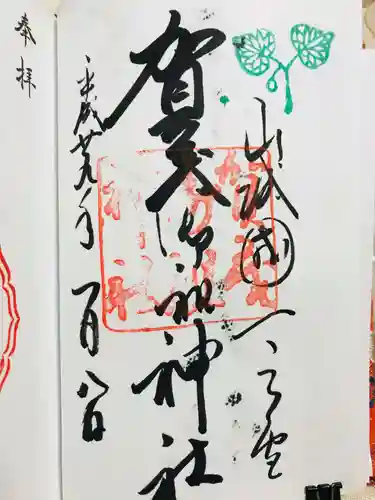 山城國一之宮
賀茂御祖神社
平成廿九年一月八日
奉拝